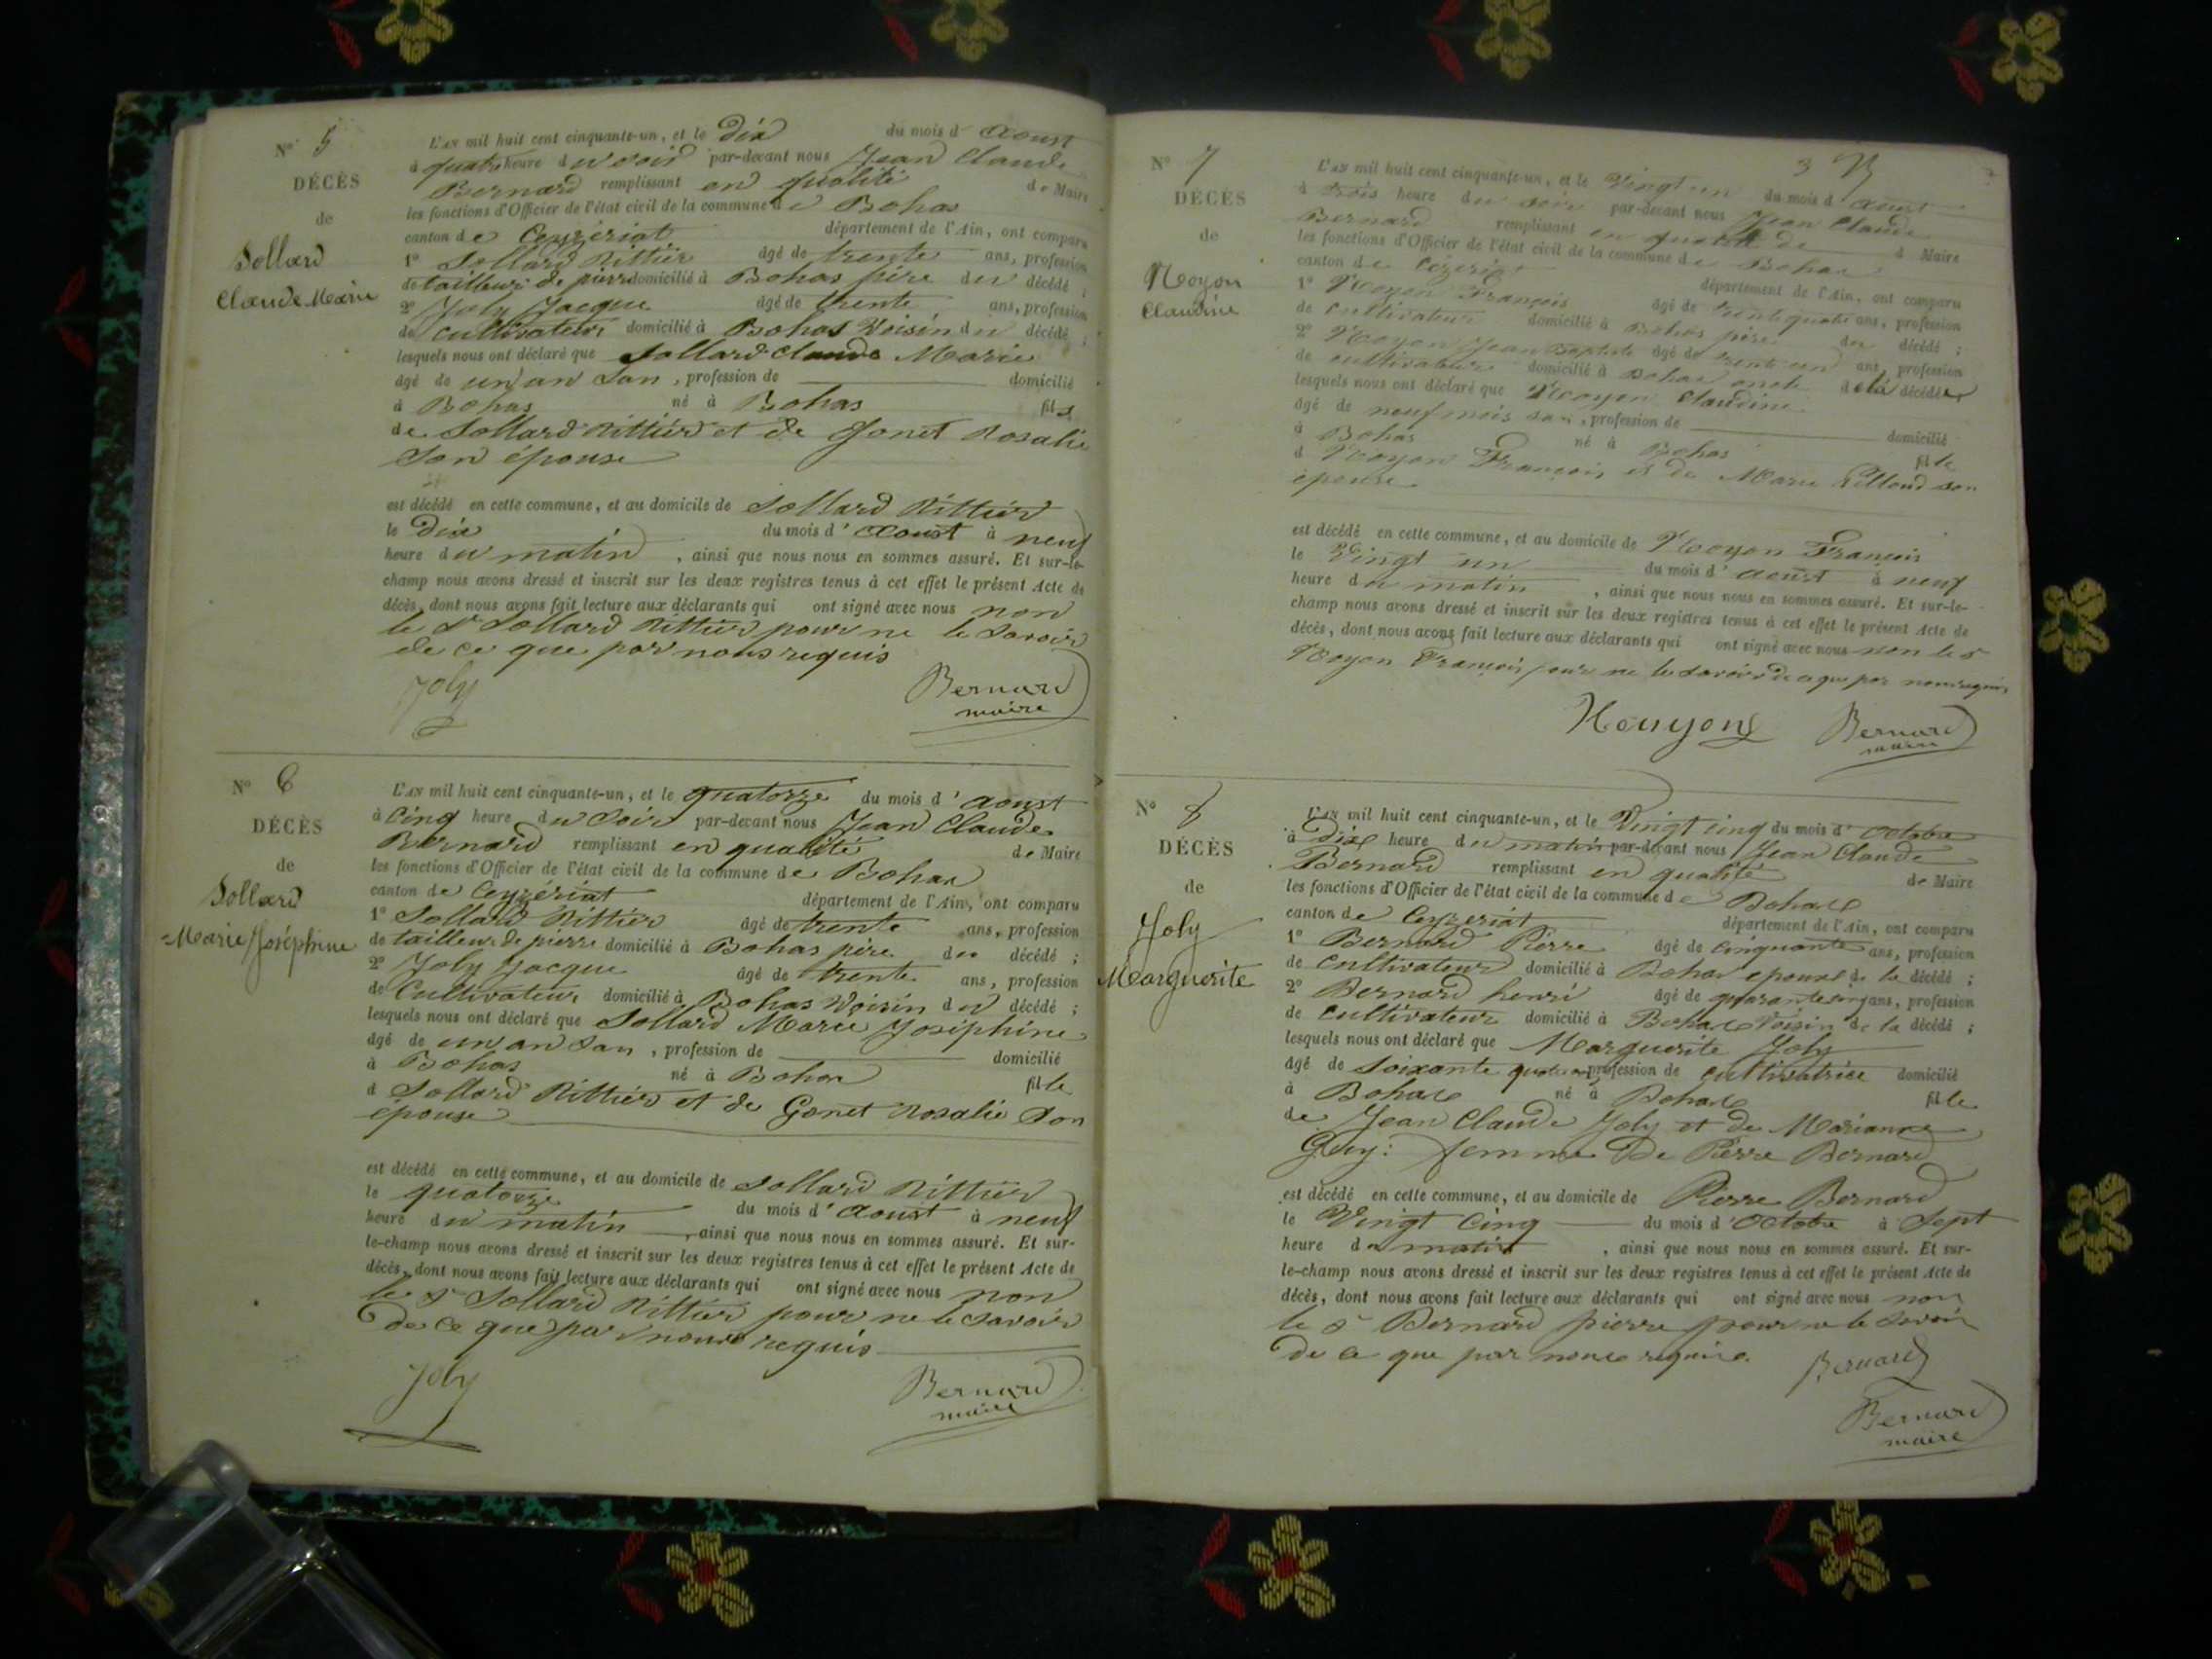 N° 5
DÉCÈS
de
Sollard
Claude Marie
L'AN mil huit cent cinquante-un, et le dix du mois d' aoust
à quatre heure du soir par-devant nous Jean Claude
Bernard remplissant en qualité de Maire
les fonctions d'Officier de l'état civil de la commune de Bohas
canton de Ceyzeriat département de l'Ain, ont comparu
1° Sollard Rittier âgé de trente ans, profession
de tailleur de pierre domicilié à Bohas père du décédé ;
2° Joly Jacque âgé de trente ans, profession
de cultivateur domicilié à Bohas Voisin du décédé ;
lesquels nous ont déclaré que Sollard Claude Marie
âgé de un an San , profession de domicilié
à Bohas né à Bohas fils
de Sollard Rittier et de Gonet Rosalie
Son épouse
est décédé en cette commune, et au domicile de Sollard Rittier
le Dix du mois d' aoust à neuf
heure du matin , ainsi que nous nous en sommes assuré. Et sur-le-
champ nous avons dressé et inscrit sur les deux registres tenus à cet effet le présent Acte de
décès, dont nous avons fait lecture aux déclarants qui ont signé avec nous non
le Sr Sollard Rittier pour ne le Savoir
de ce que par nous requis
Joly Bernard
maire
N° 6
DÉCÈS
de
Sollard
Marie Joséphine
L'AN mil huit cent cinquante-un, et le quatorze du mois d' aoust
à Cinq heure du Soir par-devant nous Jean Claude
Bernard remplissant en qualité de Maire
les fonctions d'Officier de l'état civil de la commune de Bohas
canton de Ceyzériat département de l'Ain, ont comparu
1° Sollard Rittier âgé de trente ans, profession
de tailleur de pierre domicilié à Bohas père du décédé ;
2° Joly Jacque âgé de trente ans, profession
de Cultivateur domicilié à Bohas Voisin du décédé ;
lesquels nous ont déclaré que Sollard Marie Joséphine
âgé de un an San , profession de domicilié
à Bohas né à Bohas fille
d Sollard Rittier et de Gonet Rosalie Son
épouse
est décédé en cette commune, et au domicile de Sollard Rittier
le quatorze du mois d' aoust à neuf
heure du matin , ainsi que nous nous en sommes assuré. Et sur-
le-champ nous avons dressé et inscrit sur les deux registres tenus à cet effet le présent Acte de
décès, dont nous avons fait lecture aux déclarants qui ont signé avec nous non
le Sr Sollard Rittier pour ne le Savoir
De ce que par nous requis
Joly Bernard
maire
3
N° 7
DÉCÈS
de
Noyon
Claudine
L'AN mil huit cent cinquante-un, et le Vingt un du mois d aoust
à trois heure du soir par-devant nous Jean Claude
Bernard remplissant en qualité de d Maire
les fonctions d'Officier de l'état civil de la commune de Bohas
canton de département de l'Ain, ont comparu
1° Noyon François âgé de trente quatre ans, profession
de Cultivateur domicilié à Bohas père du décédé ;
2° Noyon Jean Baptiste âgé de trente un ans, profession
de cultivateur domicilié à Bohas oncle de la décédée
lesquels nous ont déclaré que Noyon Claudine
âgé de neuf mois san , profession de domicilié
à Bohas né à Bohas fille
d Noyon François et de Marie Pilloud son
épouse
est décédé en cette commune, et au domicile de Noyon François
le Vingt un du mois d' aoust à neuf
heure du matin , ainsi que nous nous en sommes assuré. Et sur-le-
champ nous avons dressé et inscrit sur les deux registres tenus à cet effet le présent Acte de
décès, dont nous avons fait lecture aux déclarants qui ont signé avec nous non le Sr
Noyon François pour ne le savoir de ce que par nous requis
Nouyon Bernard
maire
N° 8
DÉCÈS
de
Joly
Marguerite
L'AN mil huit cent cinquante-un, et le Vingt cinq du mois d' octobre
à Dix heure du matin par-devant nous Jean Claude
Bernard remplissant en qualité de Maire
les fonctions d'Officier de l'état civil de la commune de Bohas
canton de Ceyzeriat département de l'Ain, ont comparu
1° Bernard Pierre âgé de cinquante ans, profession
de cultivateur domicilié à Bohas epoux de la décédé ;
2° Bernard henri âgé de quarante cinq ans, profession
de cultivateur domicilié à Bohas Voisin de la décédé ;
lesquels nous ont déclaré que Marguerite Joly
âgé de Soixante quatre ans, profession de cultivatrice domicilié
à Bohas né à Bohas fille
de Jean Claude Joly et de Marianne
Guy: femme De Pierre Bernard
est décédé en cette commune, et au domicile de Pierre Bernard
le Vingt Cinq du mois d' Octobre à Sept
heure du matin , ainsi que nous nous en sommes assuré. Et sur-
le-champ nous avons dressé et inscrit sur les deux registres tenus à cet effet le présent Acte de
décès, dont nous avons fait lecture aux déclarants qui ont signé avec nous non
le Sr Bernard pierre pour ne le Savoir
De ce que par nous requis.
Bernard
Bernard
maire